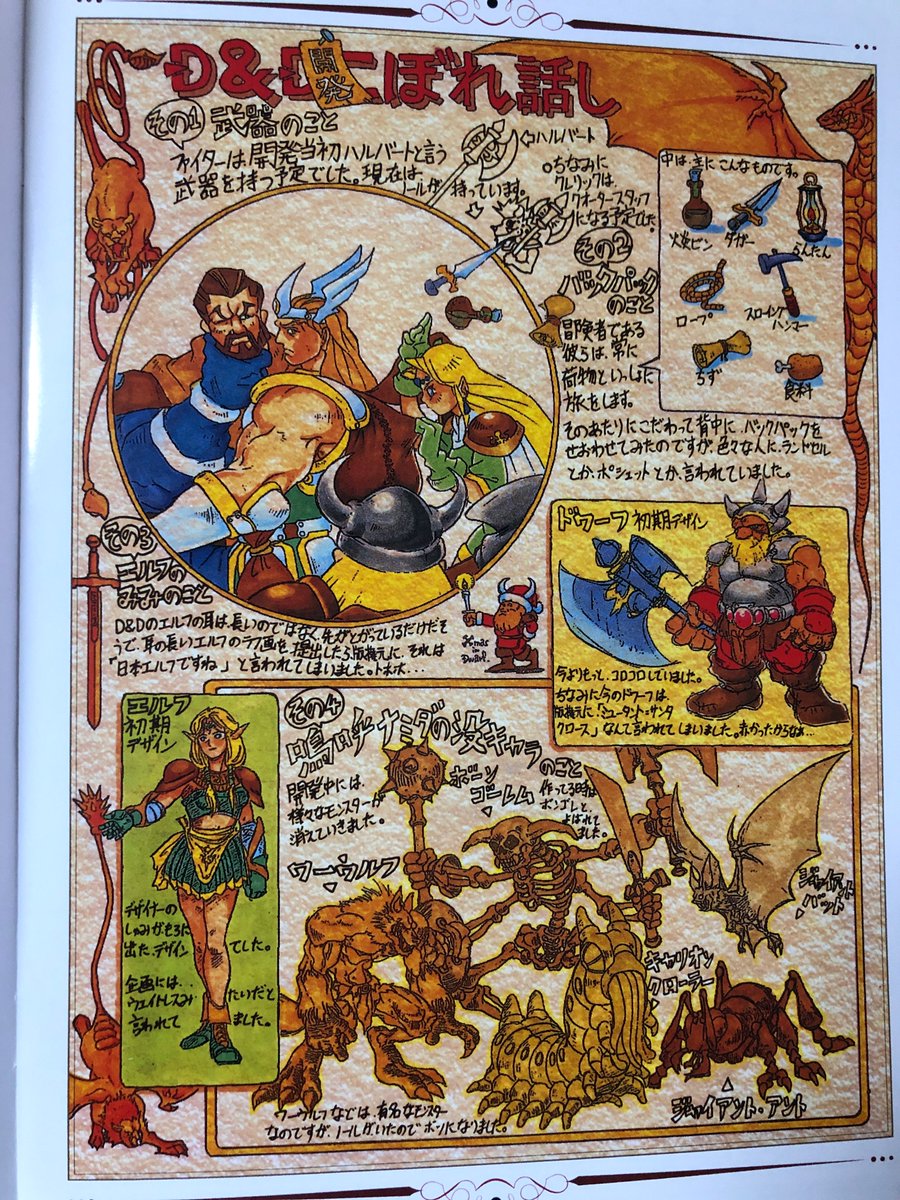 D&D開発こぼれ話し
その1 武器のこと
ファイターは、開発当初ハルバートと言う
武器を持つ予定でした。現在は、
ノールが持っています。
ハルバート
ちなみに
クレリックは、
クオータースタッフ
になる予定でした
その2
バックパック
のこと
冒険者である
彼らは、常に
荷物といっしょに
旅をします。
そのあたりにこだわって背中に、バックパックを
せおわせてみたのですが、色々な人に、ランドセル
とか、ポシェットとか、言われていました。
中は、主にこんなものです。
火炎ビン
ダガー
らんたん
ロープ
スローイング
ハンマー
ちず
食料
その3
エルフの
みみのこと
D&Dのエルフの耳は、長いのではなく、先がとがっているだけだそ
うで、耳の長いエルフのラフ画を提出したら版権元に、それは
「日本エルフですね」と言われてしまいました。トホホ…
X'mas
in
Dwarf.
ドワーフ初期デザイン
今よりもっと、コロコロしていました。
ちなみに今のドワーフは、
版権元に「ミュータント・サンタ
クロース」なんて言われてしまいました。赤かったからなぁ…
エルフ
初期
デザイン
デザイナーの
しゅみがもろに
出た、デザインでした。
企画には…
ウェイトレスみたいだと
言われてました。
その4
嗚呼ナミダの没キャラ
のこと
開発中には、
様々なモンスターが
消えていきました。
ボーン
ゴーレム
作ってる時は
ボンゴレと、
よばれて
ました。
ワーウルフ
ジャイアント
バット
キャリオン
クローラー
ジャイアント・アント
ワーウルフなどは、有名なモンスター
なのですが、ノールがいたのでボツになりました。